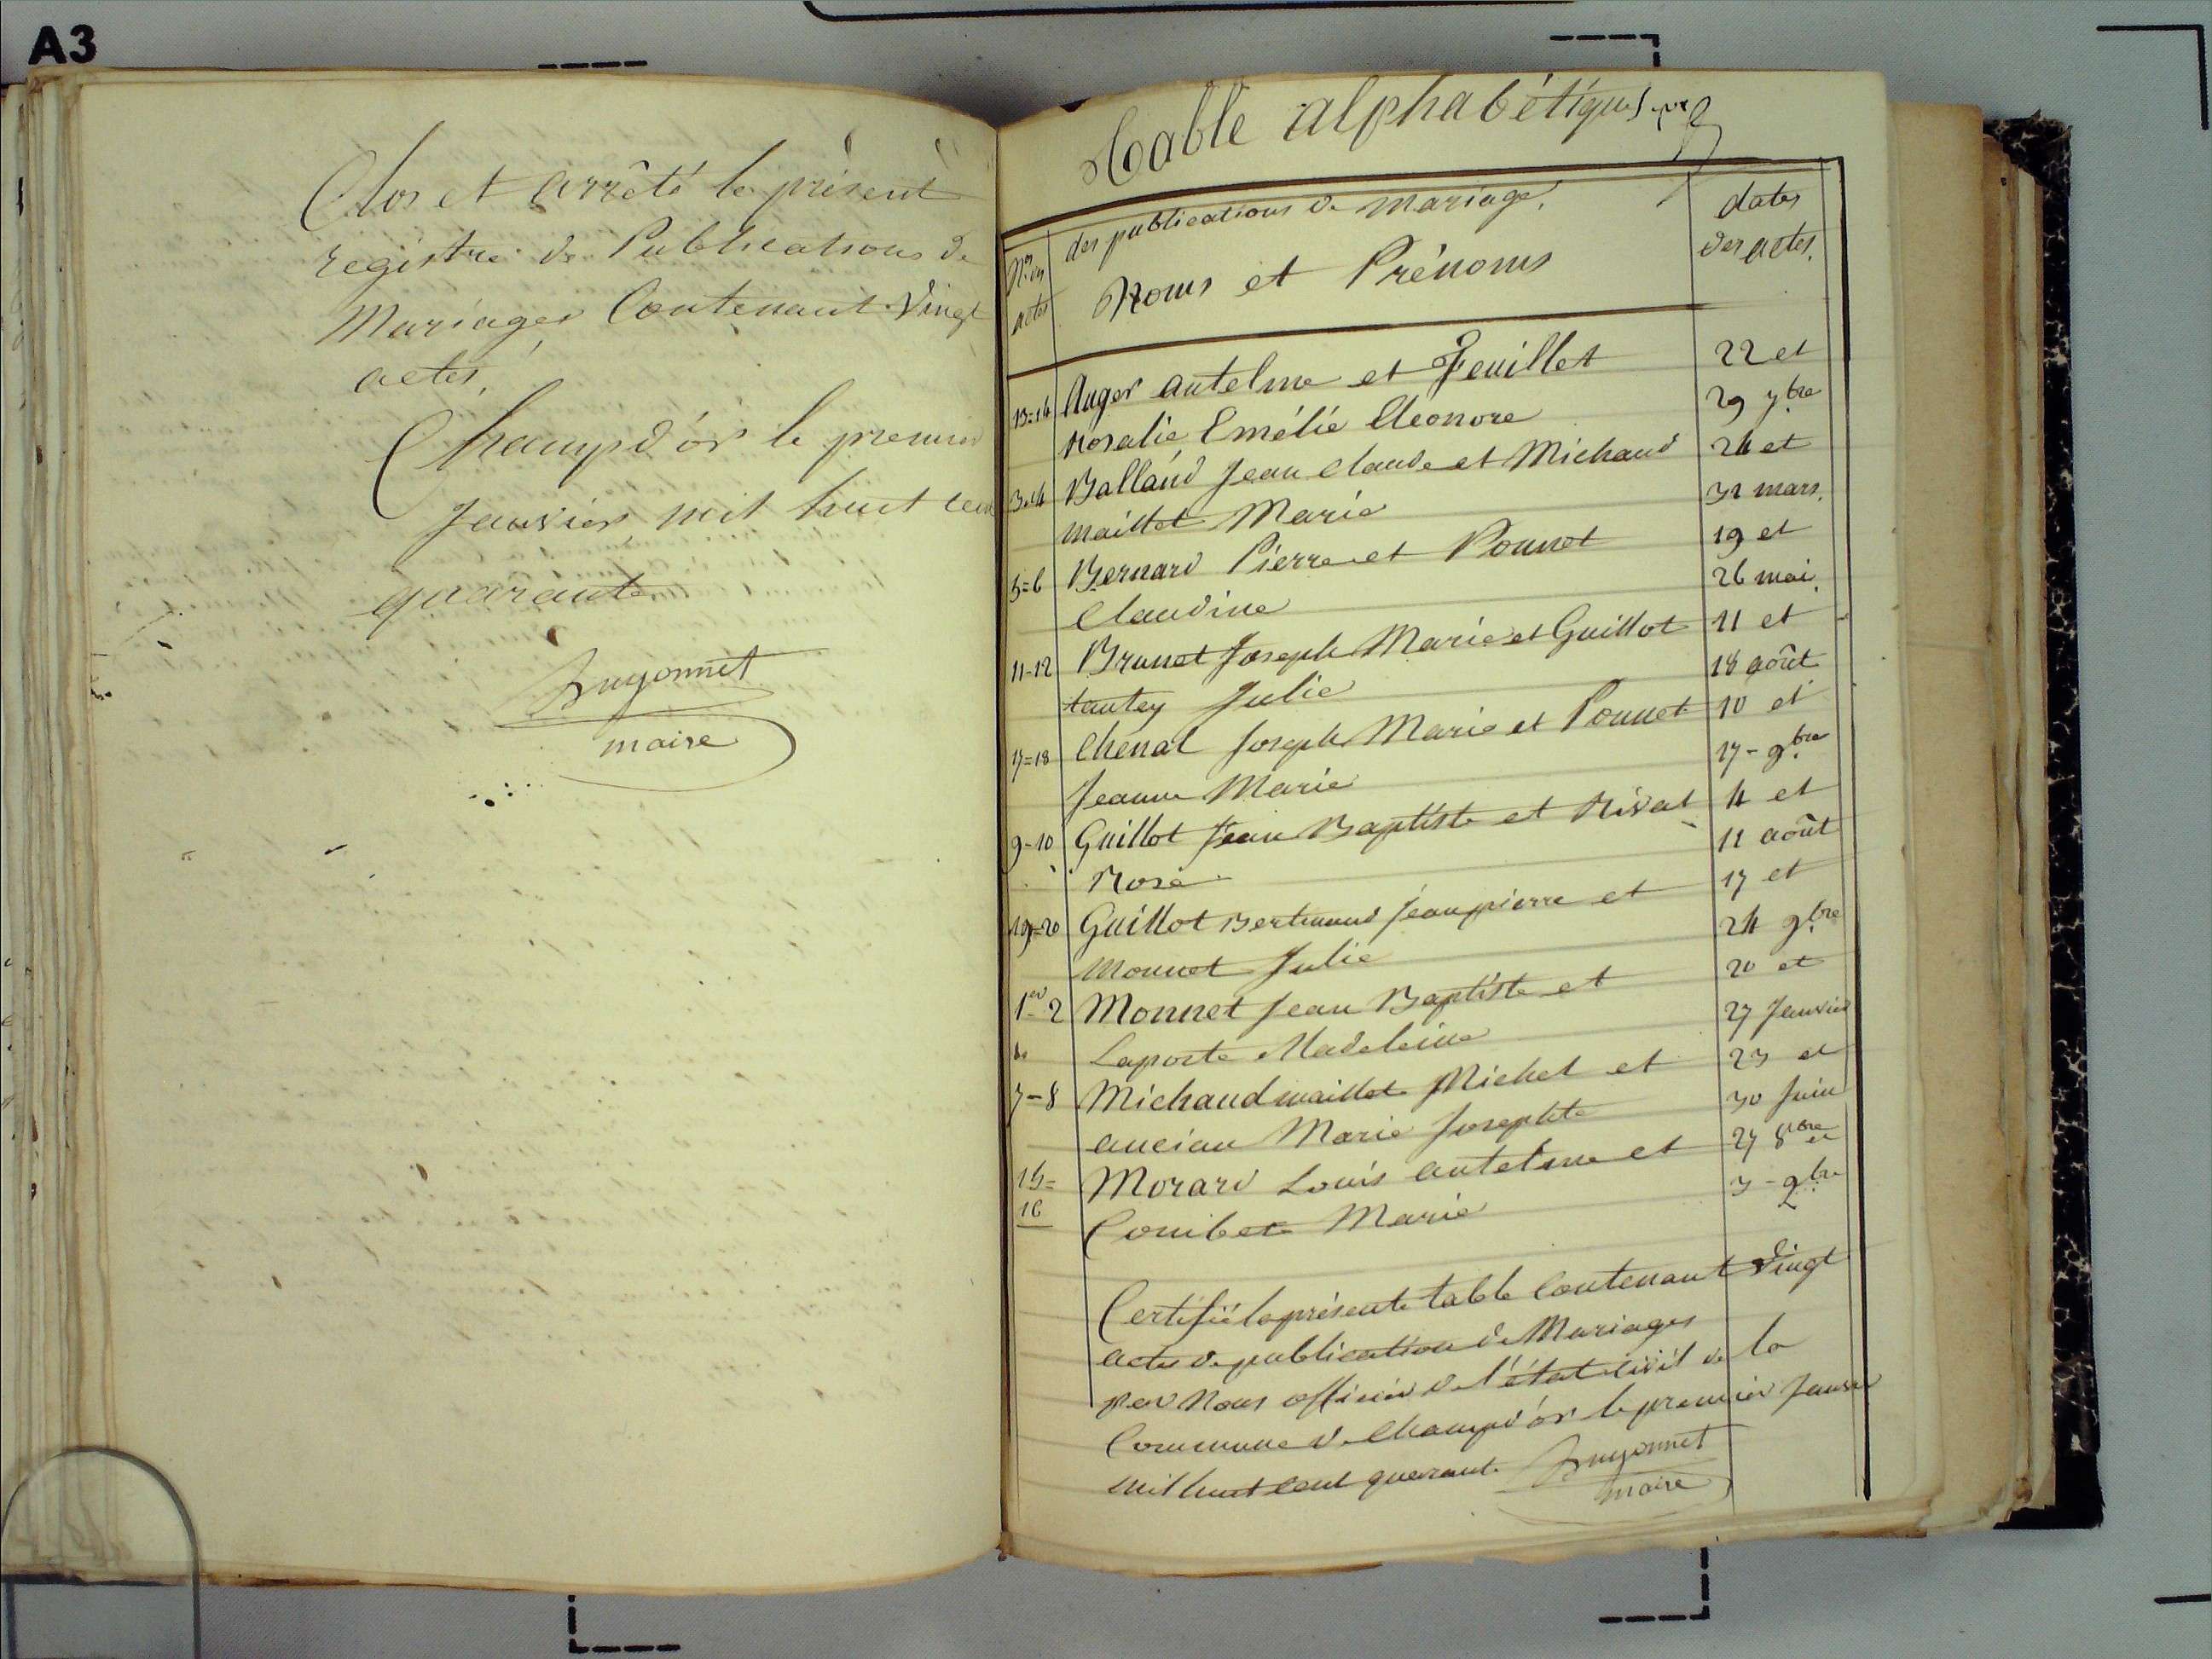 A3
Clos et arrêté le présent
registre de Publications de
Mariages Contenant Vingt
actes.
Champd'or le premier
Janvier mil huit cent
quarante
Buyonnet
maire
Table alphabétique
des publications de mariage.
Nos des actes
Noms et Prénoms
dates
des actes.
13=14 Auger Antelme et Feuillet 22 et
Rosalie Emélie Eléonore 29 7bre
3=4 Balland Jean Claude et Michaud 24 et
maillet Marie 31 mars.
5=6 Bernard Pierre et Ponnet 19 et
Claudine 26 mai.
11-12 Brunet Joseph Marie et Guillot 11 et
tantey Julie 18 août
17=18 Chenal Joseph Marie et Ponnet 10 et
Jeanne Marie 17-9bre
9-10 Guillot Jean Baptiste et Nivat 4 et
Rose 11 août
19=20 Guillot Bertrand Jean pierre et 17 et
Monnet Julie 24 9bre
1er-2 Monnet Jean Baptiste et 20 et
Laporte Madeleine 27 Janvier
7-8 Michaud maillet Michel et 23 et
ancian Marie Josephte 30 Juin
15= Morard Louis antelme et 27 8bre et
16 Combet Marie 3-9bre
Certifié la présente table Contenant Vingt
actes de publication de Mariages
par Nous officier de l'état civil de la
Commune de Champd'or le premier Janvier
mil huit cent quarante Buyonnet
maire